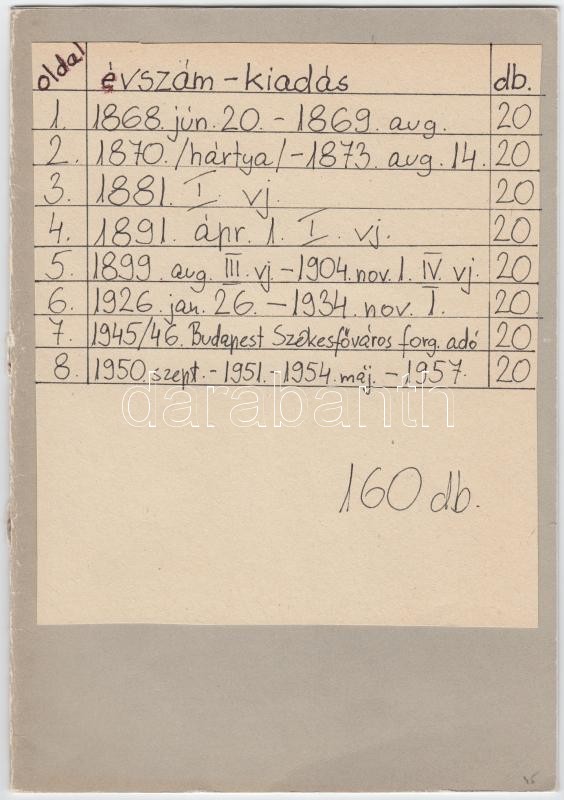 oldal évszám - kiadás db.
1. 1868. jún. 20. - 1869. aug. 20
2. 1870. /hártya/ - 1873. aug. 14. 20
3. 1881. I. vj. 20
4. 1891. ápr. 1. I. vj. 20
5. 1899. aug. III. vj. - 1904. nov. 1. IV vj. 20
6. 1926. jan. 26. - 1934. nov. 1. 20
7. 1945/46. Budapest Székesfőváros forg. adó 20
8. 1950 szept. - 1951. - 1954. máj. - 1957. 20
darabanth
160 db.